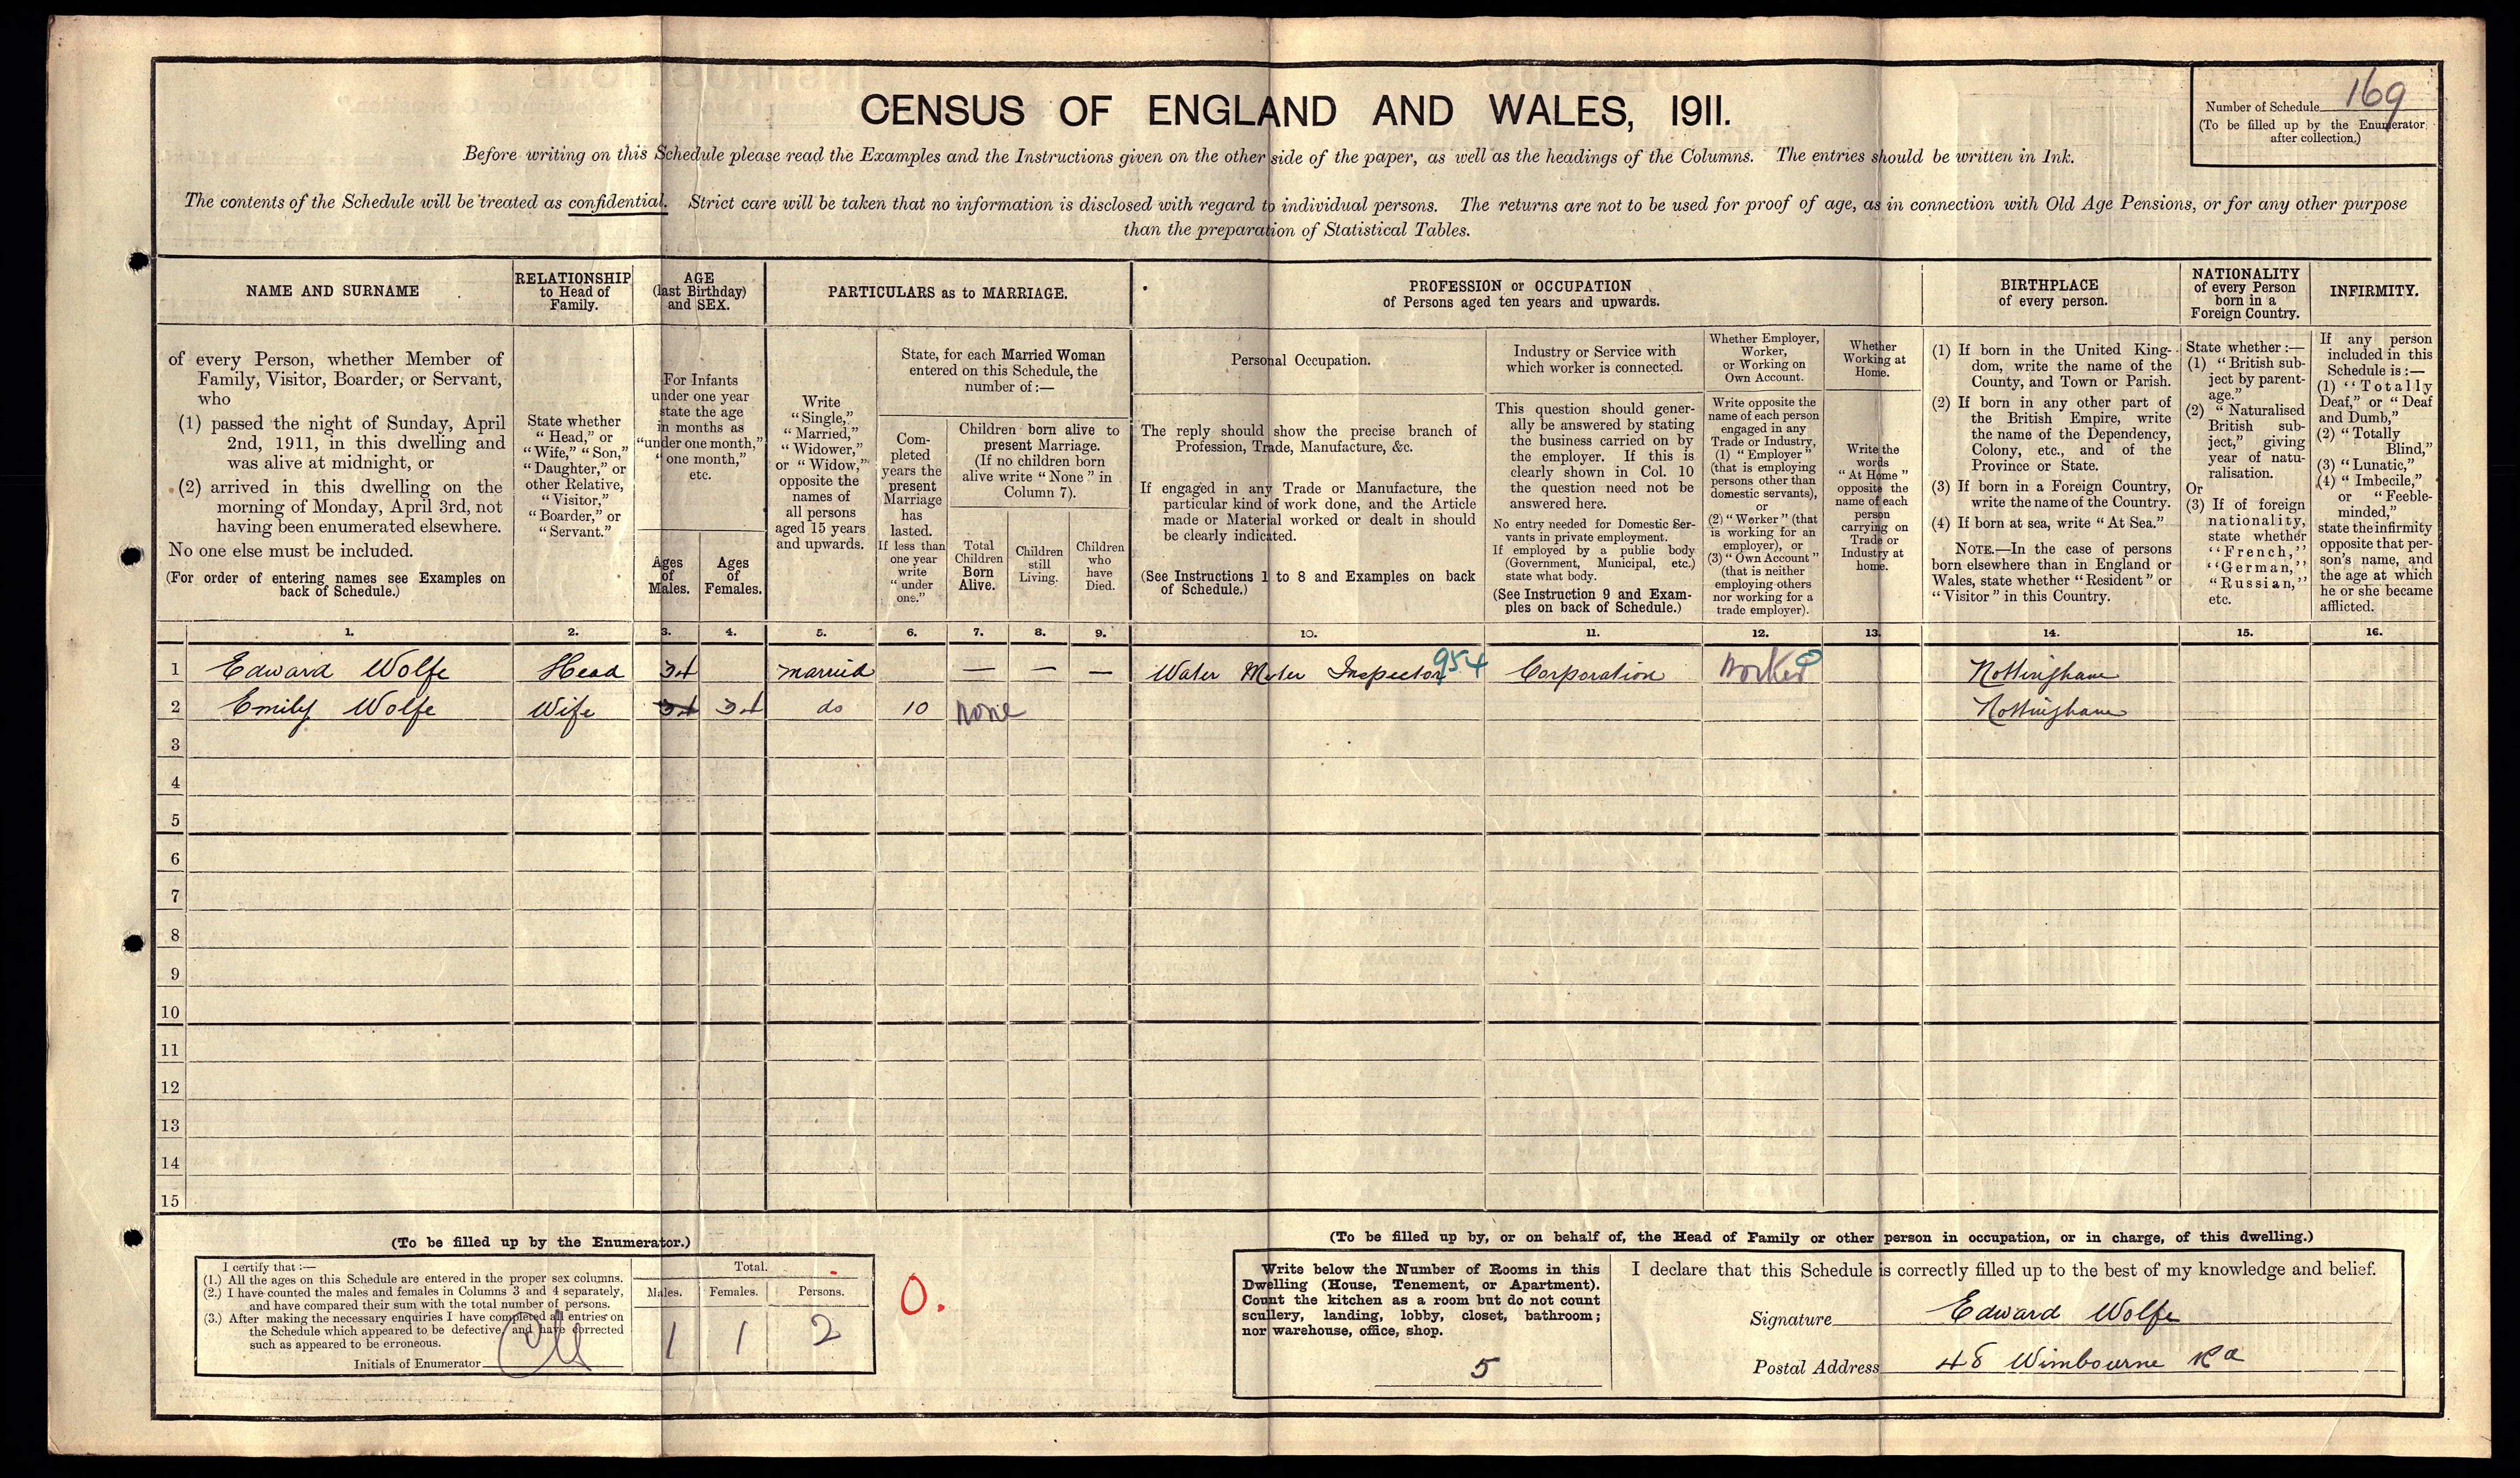 CENSUS OF ENGLAND AND WALES, 1911.
Number of Schedule 169
(To be filled up by the Enumerator after collection.)
Before writing on this Schedule please read the Examples and the Instructions given on the other side of the paper, as well as the headings of the Columns. The entries should be written in Ink.
The contents of the Schedule will be treated as confidential. Strict care will be taken that no information is disclosed with regard to individual persons. The returns are not to be used for proof of age, as in connection with Old Age Pensions, or for any other purpose
than the preparation of Statistical Tables.
NAME AND SURNAME
RELATIONSHIP
to Head of
Family.
AGE
(last Birthday)
and SEX.
PARTICULARS as to MARRIAGE.
PROFESSION or OCCUPATION
of Persons aged ten years and upwards.
BIRTHPLACE
of every person.
NATIONALITY
of every Person
born in a
Foreign Country.
INFIRMITY.
of every Person, whether Member of
Family, Visitor, Boarder, or Servant,
who
(1) passed the night of Sunday, April
2nd, 1911, in this dwelling and
was alive at midnight, or
(2) arrived in this dwelling on the
morning of Monday, April 3rd, not
having been enumerated elsewhere.
No one else must be included.
(For order of entering names see Examples on
back of Schedule.)
State whether
"Head," or
"Wife," "Son,"
"Daughter," or
other Relative,
"Visitor,"
"Boarder," or
"Servant."
For Infants
under one year
state the age
in months as
"under one month,"
"one month,"
etc.
Ages
of
Males.
Ages
of
Females.
Write
"Single,"
"Married,"
"Widower,"
or "Widow,"
opposite the
names of
all persons
aged 15 years
and upwards.
State, for each Married Woman
entered on this Schedule, the
number of:—
Com-
pleted
years the
present
Marriage
has
lasted.
If less than
one year
write
"under
one."
Children born alive to
present Marriage.
(If no children born
alive write "None" in
Column 7).
Total
Children
Born
Alive.
Children
still
Living.
Children
who
have
Died.
Personal Occupation.
The reply should show the precise branch of
Profession, Trade, Manufacture, &c.
If engaged in any Trade or Manufacture, the
particular kind of work done, and the Article
made or Material worked or dealt in should
be clearly indicated.
(See Instructions 1 to 8 and Examples on back
of Schedule.)
Industry or Service with
which worker is connected.
This question should gener-
ally be answered by stating
the business carried on by
the employer. If this is
clearly shown in Col. 10
the question need not be
answered here.
No entry needed for Domestic Ser-
vants in private employment.
If employed by a public body
(Government, Municipal, etc.)
state what body.
(See Instruction 9 and Exam-
ples on back of Schedule.)
Whether Employer,
Worker,
or Working on
Own Account.
Write opposite the
name of each person
engaged in any
Trade or Industry,
(1) "Employer"
(that is employing
persons other than
domestic servants),
or
(2) "Worker" (that
is working for an
employer), or
(3) "Own Account"
(that is neither
employing others
nor working for a
trade employer).
Whether
Working at
Home.
Write the
words
"At Home"
opposite the
name of each
person
carrying on
Trade or
Industry at
home.
(1) If born in the United King-
dom, write the name of the
County, and Town or Parish.
(2) If born in any other part of
the British Empire, write
the name of the Dependency,
Colony, etc., and of the
Province or State.
(3) If born in a Foreign Country,
write the name of the Country.
(4) If born at sea, write "At Sea."
NOTE.—In the case of persons
born elsewhere than in England or
Wales, state whether "Resident" or
"Visitor" in this Country.
State whether:—
(1) "British sub-
ject by parent-
age."
(2) "Naturalised
British sub-
ject," giving
year of natu-
ralisation.
Or
(3) If of foreign
nationality,
state whether
"French,"
"German,"
"Russian,"
etc.
If any person
included in this
Schedule is:—
(1) "Totally
Deaf," or "Deaf
and Dumb,"
(2) "Totally
Blind,"
(3) "Lunatic,"
(4) "Imbecile,"
or "Feeble-
minded,"
state the infirmity
opposite that per-
son's name, and
the age at which
he or she became
afflicted.
1. 2. 3. 4. 5. 6. 7. 8. 9. 10. 11. 12. 13. 14. 15. 16.
1 Edward Wolfe Head 34 married — — — Water Meter Inspector 954 Corporation Worker Nottingham
2 Emily Wolfe Wife 34 34 do 10 None Nottingham
3
4
5
6
7
8
9
10
11
12
13
14
15
(To be filled up by the Enumerator.)
I certify that:—
(1.) All the ages on this Schedule are entered in the proper sex columns.
(2.) I have counted the males and females in Columns 3 and 4 separately,
and have compared their sum with the total number of persons.
(3.) After making the necessary enquiries I have completed all entries on
the Schedule which appeared to be defective, and have corrected
such as appeared to be erroneous.
Initials of Enumerator
Total.
Males. Females. Persons.
1 1 2
0.
(To be filled up by, or on behalf of, the Head of Family or other person in occupation, or in charge, of this dwelling.)
Write below the Number of Rooms in this
Dwelling (House, Tenement, or Apartment).
Count the kitchen as a room but do not count
scullery, landing, lobby, closet, bathroom;
nor warehouse, office, shop.
5
I declare that this Schedule is correctly filled up to the best of my knowledge and belief.
Signature Edward Wolfe
Postal Address 48 Wimbourne Rd